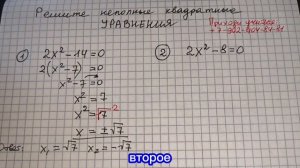 Решите неполные квадратные
УРАВНЕНИЯ
① 2x²-14=0
2(x²-7)=0
x²-7=0
x²=7
x=±√7
x₁=√7 x₂=-√7
② 2x²-8=0
второе